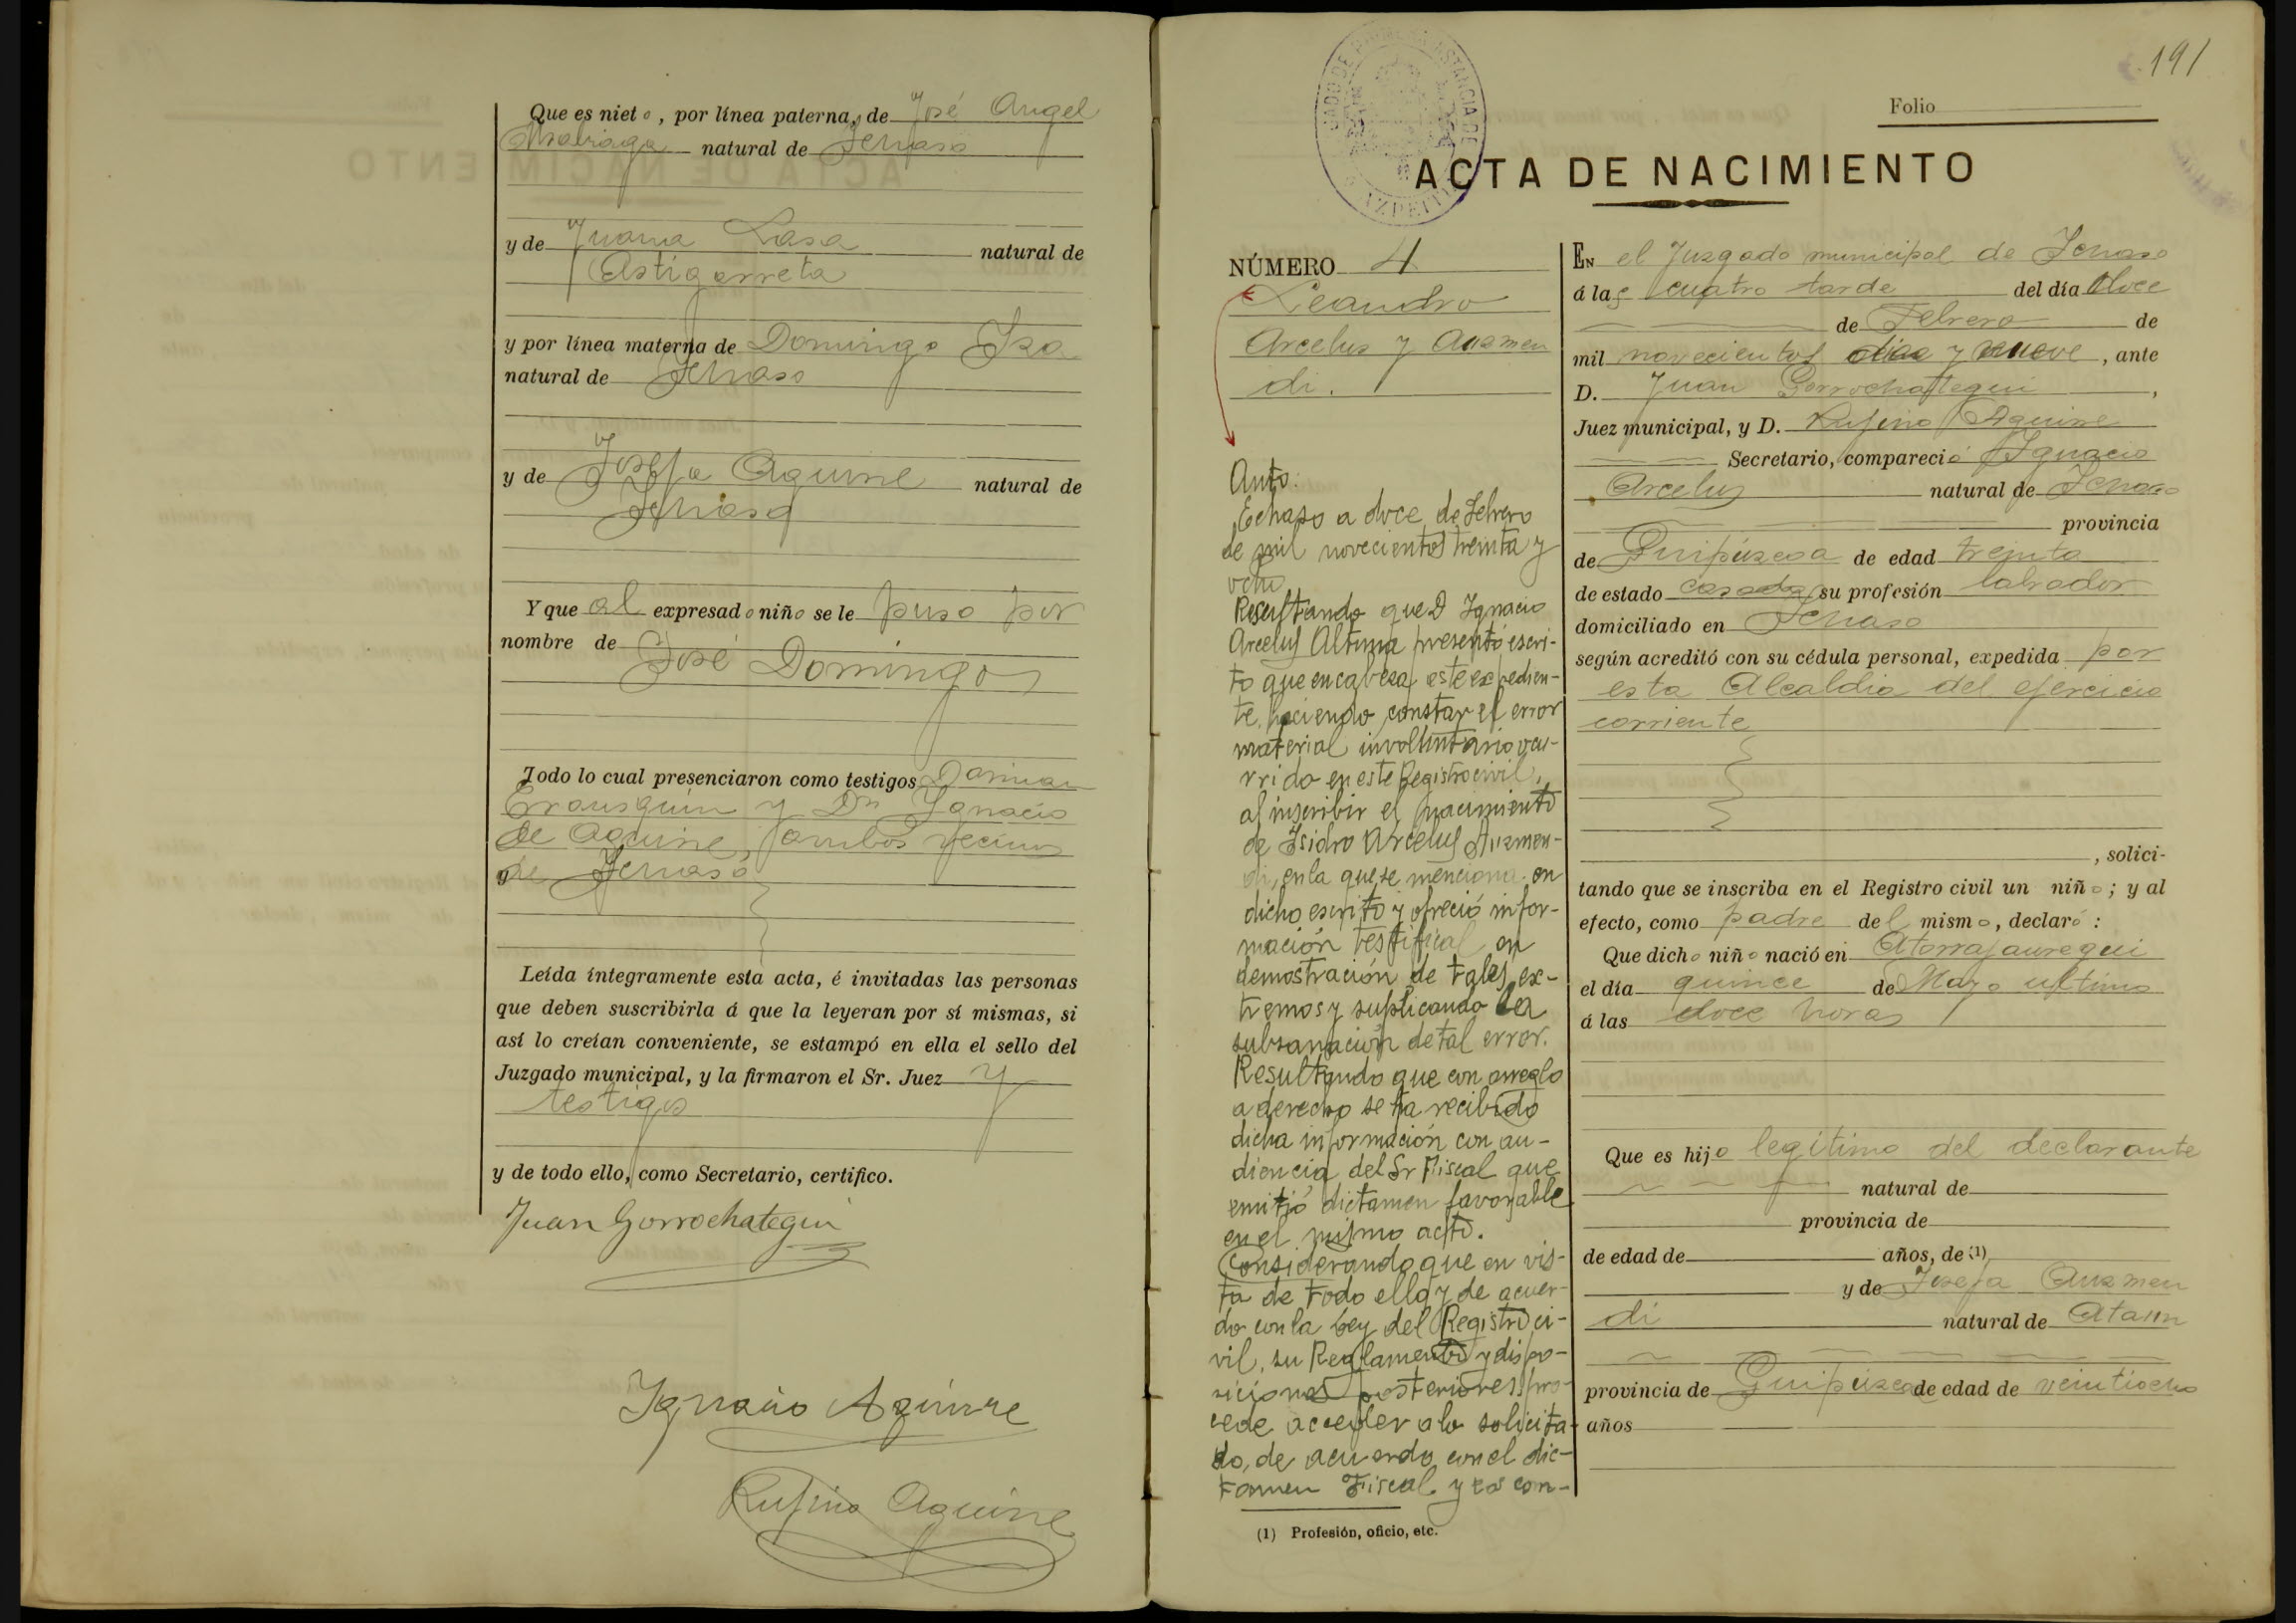 Que es nieto, por línea paterna, de José Angel
natural de Ichaso
y de Juana Lasa natural de
Astigarreta
y por línea materna de Domingo Iza
natural de Ichaso
y de Josefa Aguirre natural de
Ichaso
Y que al expresado niño se le puso por
nombre de José Domingo
Todo lo cual presenciaron como testigos Damian
Erausquin y Dn Ignacio
de Aguirre, ambos vecinos
de Ichaso
Leída íntegramente esta acta, é invitadas las personas
que deben suscribirla á que la leyeran por sí mismas, si
así lo creían conveniente, se estampó en ella el sello del
Juzgado municipal, y la firmaron el Sr. Juez y
testigos
y de todo ello, como Secretario, certifico.
Juan Gorrochategui
Ignacio Aguirre
Rufino Aguirre
191
Folio
ACTA DE NACIMIENTO
NÚMERO 4
Leandro
Arcelus y Auzmen
di.
Auto.
Echaso a doce de Febrero
de mil novecientos treinta y
ocho
Resultando que D Ignacio
Arcelus Altuna presentó escri-
to que encabeza este expedien-
te, haciendo constar el error
material involuntario ocu-
rrido en este Registro civil,
al inscribir el nacimiento
de Isidro Arcelus Auzmen-
di, en la que se menciona en
dicho escrito y ofreció infor-
mación testifical en
demostración de tales ex-
tremos y suplicando la
subsanación de tal error.
Resultando que con arreglo
a derecho se ha recibido
dicha información con au-
diencia del Sr Fiscal que
emitió dictamen favorable
en el mismo acto.
Considerando que en vis-
ta de todo ello y de acuer-
do con la Ley del Registro ci-
vil, su Reglamento y dispo-
siciones posteriores, pro-
cede acceder a lo solicita-
do, de acuerdo con el dic-
tamen Fiscal y con-
(1) Profesión, oficio, etc.
EN el Juzgado municipal de Ichaso
á las cuatro tarde del día doce
de Febrero de
mil novecientos diez y nueve, ante
D. Juan Gorrochategui,
Juez municipal, y D. Rufino Aguirre
Secretario, compareció Ignacio
Arcelus natural de Ichaso
provincia
de Guipúzcoa de edad treinta
de estado casado su profesión labrador
domiciliado en Ichaso
según acreditó con su cédula personal, expedida por
esta Alcaldia del ejercicio
corriente
, solici-
tando que se inscriba en el Registro civil un niño; y al
efecto, como padre del mismo, declaró:
Que dicho niño nació en Atorrajauregui
el día quince de Mayo ultimo
á las doce horas
Que es hijo legitimo del declarante
natural de
provincia de
de edad de años, de (1)
y de Josefa Auzmen
di natural de Ataun
provincia de Guipúzcoa de edad de veintiocho
años